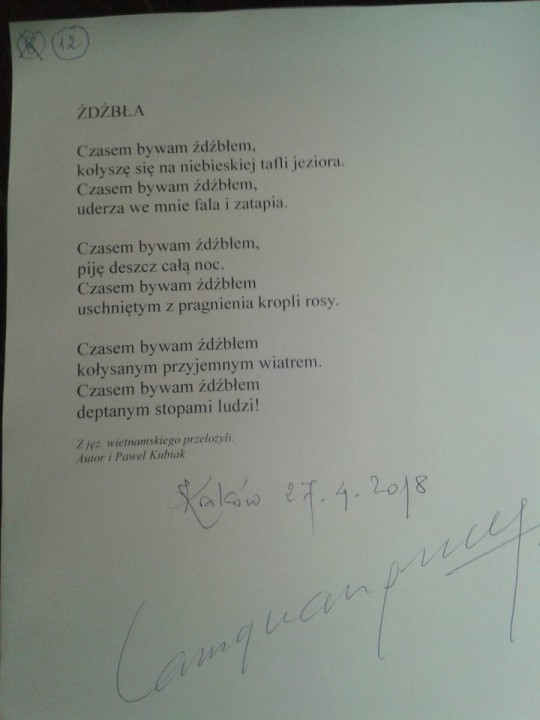 12
ŹDŹBŁA
Czasem bywam źdźbłem,
kołyszę się na niebieskiej tafli jeziora.
Czasem bywam źdźbłem,
uderza we mnie fala i zatapia.
Czasem bywam źdźbłem,
piję deszcz całą noc.
Czasem bywam źdźbłem
uschniętym z pragnienia kropli rosy.
Czasem bywam źdźbłem
kołysanym przyjemnym wiatrem.
Czasem bywam źdźbłem
deptanym stopami ludzi!
Z jęz. wietnamskiego przełożyli:
Autor i Paweł Kubiak
Kraków 27.4.2018